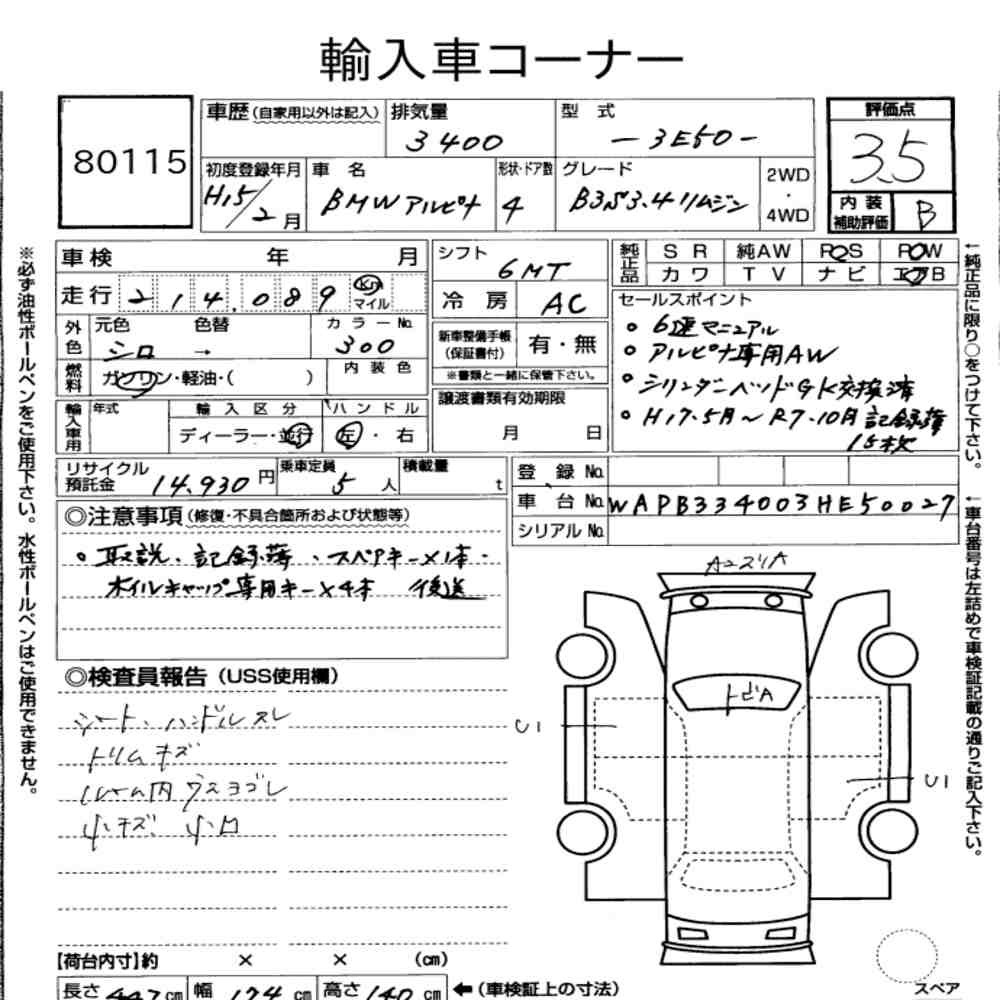 輸入車コーナー
80115
車歴(自家用以外は記入) 排気量 3400 型式 -3E50-
評価点 3.5
初度登録年月 H15/2月 車名 BMWアルピナ 形状・ドア数 4 グレード B3S3.4リムジン 2WD・4WD
内装補助評価 B
車検 年 月
走行 214,089 km マイル
外色 元色 シロ 色替 → カラーNo. 300
燃料 ガソリン・軽油・( ) 内装色
輸入車用 年式 輸入区分 ディーラー・並行 ハンドル 左・右
シフト 6MT
冷房 AC
新車整備手帳(保証書付) 有・無
※書類と一緒に保管下さい。
譲渡書類有効期限
月 日
純正品 SR 純AW PS PW
カワ TV ナビ エアB
セールスポイント
○ 6速マニュアル
○ アルピナ専用AW
○ シリンダーヘッドGK交換済
○ H17.5月~R7.10月記録簿
15枚
リサイクル預託金 14,930円 乗車定員 5人 積載量 t
登録No.
車台No. WAPB334003HE50027
シリアルNo.
◎注意事項(修復・不具合箇所および状態等)
○ 取説、記録簿、スペアキー×1本・
ホイルキャップ専用キー×4本 後送
◎検査員報告(USS使用欄)
シート、ハンドルスレ
トリムキズ
ルーム内ウスヨゴレ
小キズ 小凹
トビA
U1
U1
スペア
【荷台内寸】約 × × (cm)
長さ 447cm 幅 174cm 高さ 140cm ←(車検証上の寸法)
※必ず油性ボールペンをご使用下さい。水性ボールペンはご使用できません。
←純正品に限り○をつけて下さい。
←車台番号は左詰めで車検証記載の通りご記入下さい。